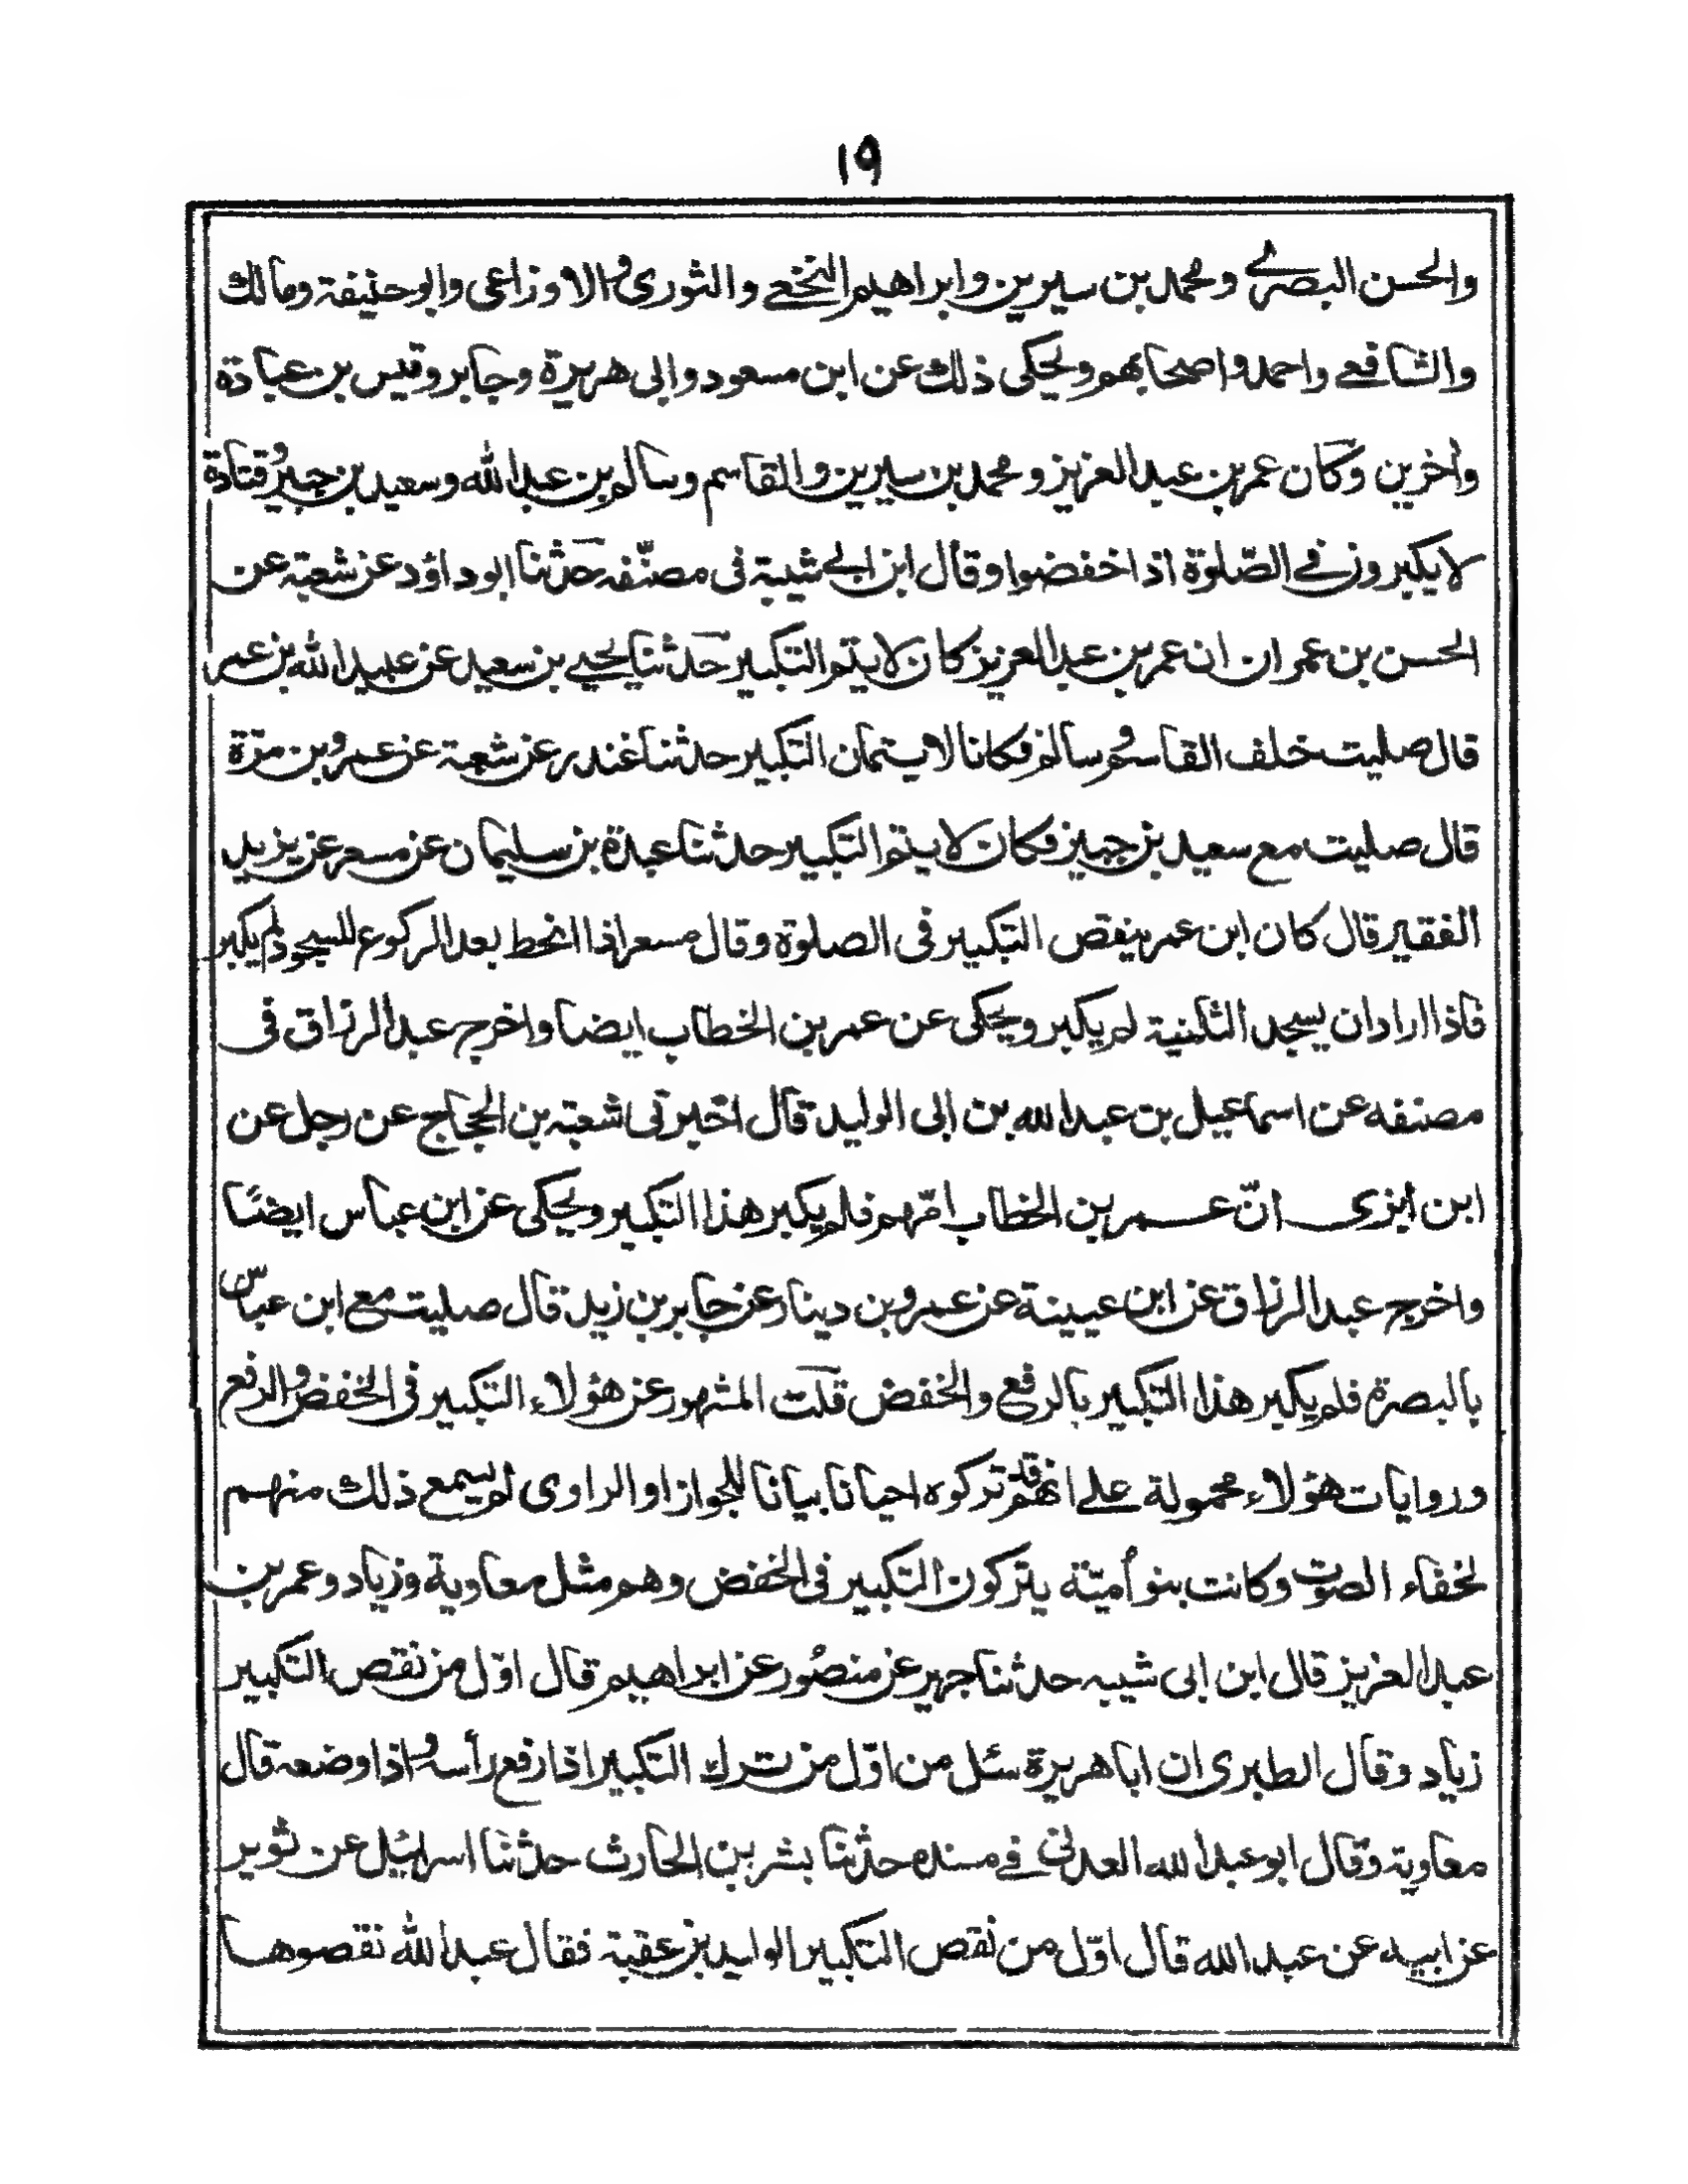 ١٩
والحسن البصرے ومحمد بن سيرين وابراهيم النخعے والثوری والاوزاعی وابو حنيفة ومالك
والشافعے واحمد واصحابهم ويحكی ذلك عن ابن مسعود وابی هريرة وجابر وقيس بن عبادة
واٰخرين وكان عمر بن عبد العزيز ومحمد بن سيرين والقاسم وسالم بن عبد الله وسعيد بن جبير وقتادة
لا يكبرون فے الصّلوٰة اذا خفضوا وقال ابن ابے شيبة فی مصنّفه حدثنا ابو داؤد عن شعبة عن
الحسن بن عمران ان عمر بن عبد العزيز كان لا يتم التكبير حدثنا يحيے بن سعيد عن عبيد الله بن عمر
قال صليت خلف القاسم وسالم فكانا لا يتمان التكبير حدثنا غندر عن شعبة عن عمرو بن مرّة
قال صليت مع سعيد بن جبير فكان لا يتم التكبير حدثنا عبدة بن سليمان عن مسعر عن يزيد
الفقير قال كان ابن عمر ينقص التكبير فی الصلوٰة وقال مسعر اذا انحط بعد الركوع للسجود لم يكبر
فاذا اراد ان يسجد الثانية لم يكبر ويحكی عن عمر بن الخطاب ايضا واخرج عبد الرزاق فی
مصنفه عن اسماعيل بن عبد الله بن ابی الوليد قال اخبرنی شعبة بن الحجاج عن رجل عن
ابن ابزی انّ عمر بن الخطاب امّهم فلم يكبر هذا التكبير ويحكی عن ابن عباس ايضًا
واخرج عبد الرزاق عن ابن عيينة عن عمرو بن دينار عن جابر بن زيد قال صليت مع ابن عباس
بالبصرة فلم يكبر هذا التكبير بالرفع والخفض قلت المشهور عن هؤلاء التكبير فی الخفض والرفع
وروايات هؤلاء محمولة علے انهم قد تركوه احيانا بيانا للجواز او الراوی لم يسمع ذلك منهم
لخفاء الصوت وكانت بنو أميّة يتركون التكبير فی الخفض وهم مثل معاوية وزياد وعمر بن
عبد العزيز قال ابن ابی شيبه حدثنا جرير عن منصُور عن ابراهيم قال اوّل من نقص التكبير
زياد وقال الطبری ان ابا هريرة سئل من اوّل من ترك التكبير اذا رفع رأسه واذا وضعه قال
معاوية وقال ابو عبد الله العدنی فے مسنده حدثنا بشر بن الحارث حدثنا اسرائيل عن ثوير
عن ابيه عن عبد الله قال اوّل من نقص التكبير الوليد بن عقبة فقال عبد الله نقصوها